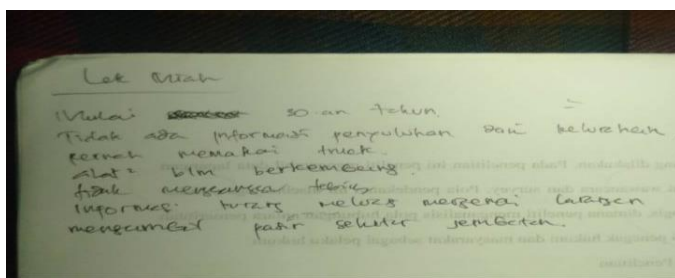 Lek Miah
Mulai 30-an tahun.
Tidak ada informasi penyuluhan dari kelurahan
pernah memakai truck.
alat² blm berkembang.
tidak mengganggu
Informasi kurang meluas mengenai larangan
mengambil pasir sekitar jembatan.